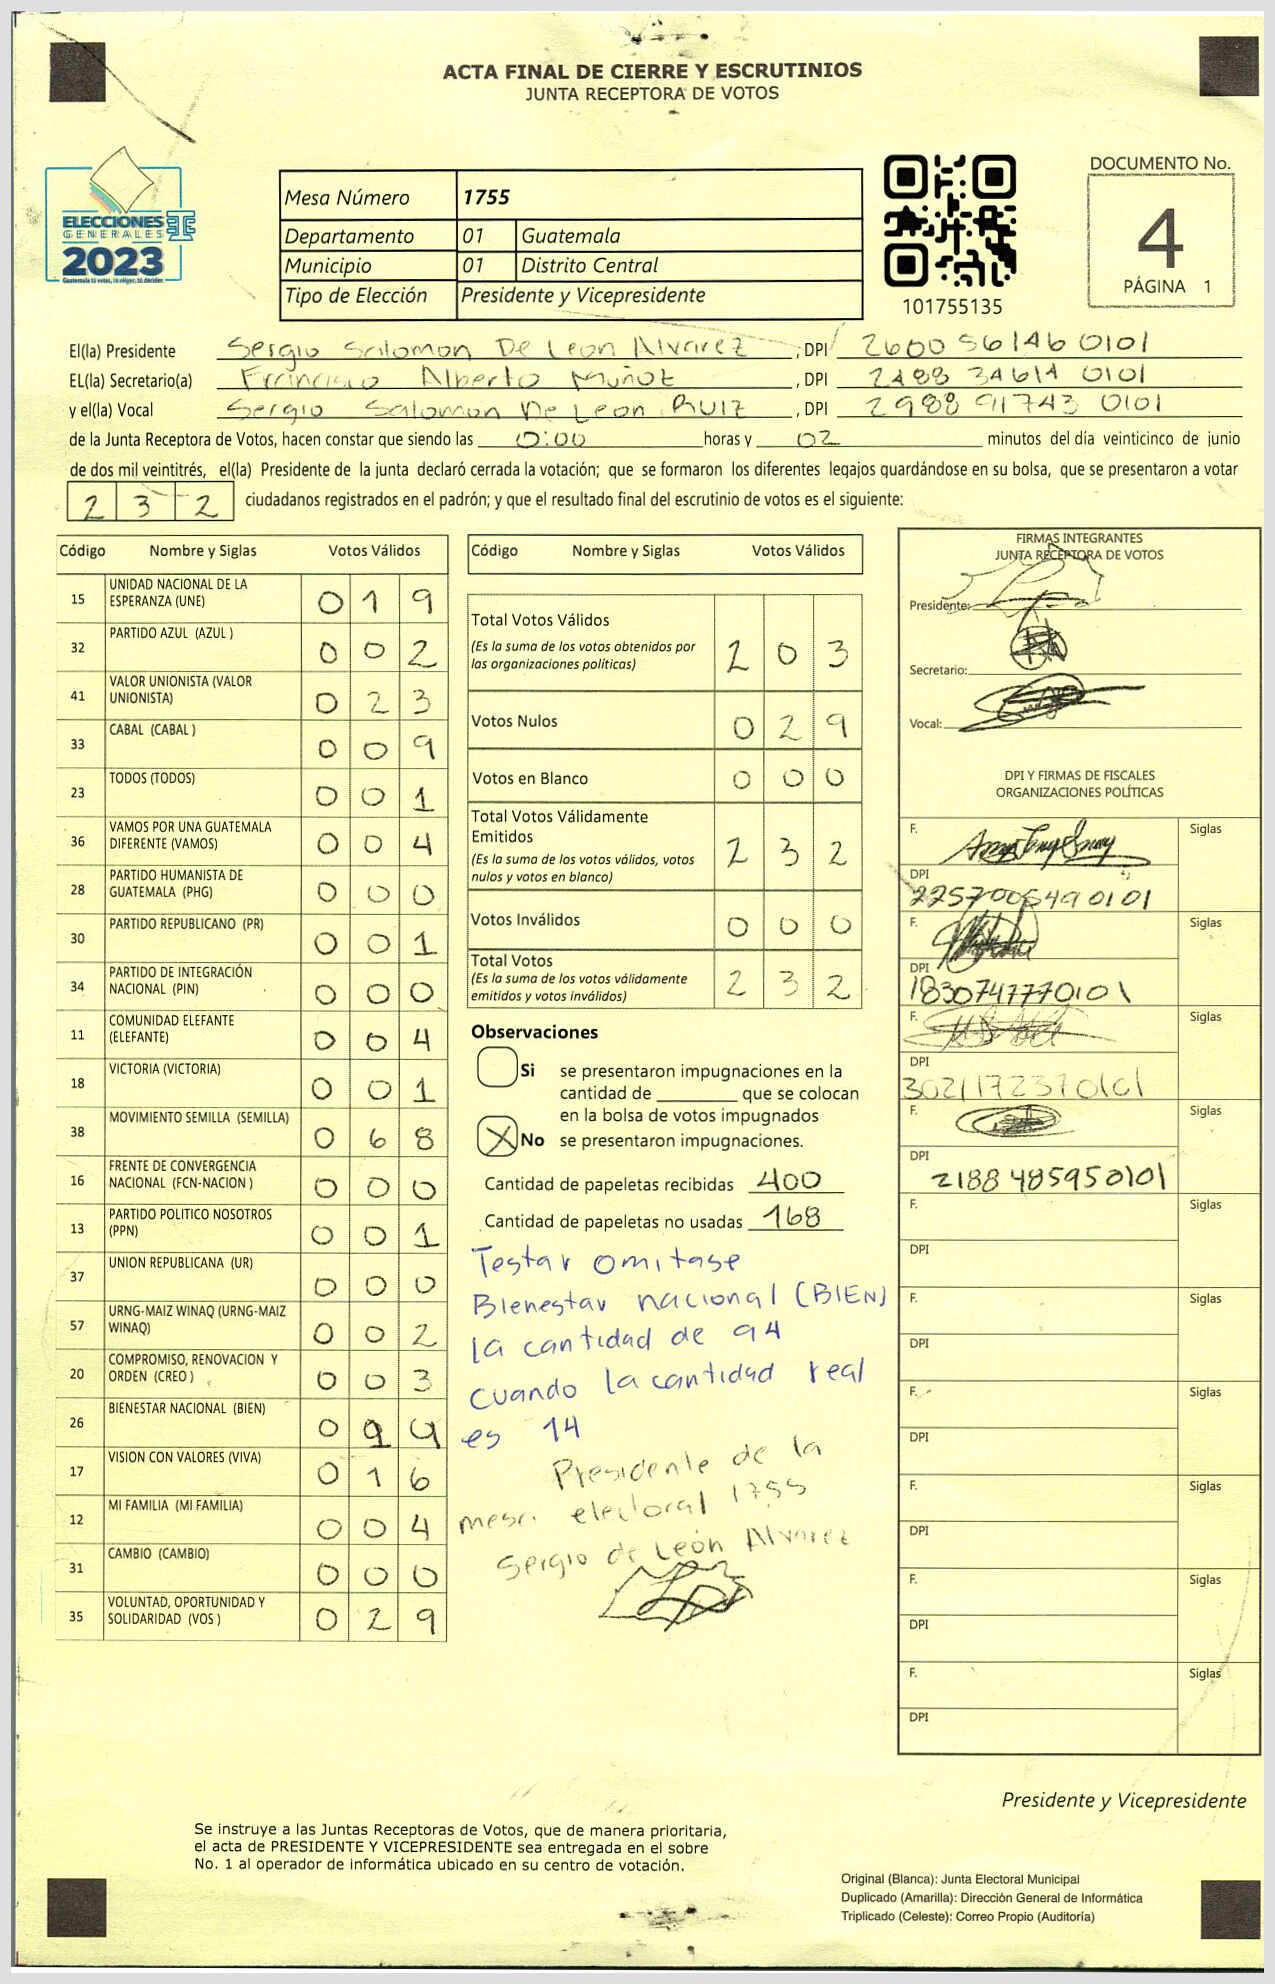 ACTA FINAL DE CIERRE Y ESCRUTINIOS
JUNTA RECEPTORA DE VOTOS
ELECCIONES
GENERALES
2023
Mesa Número 1755
Departamento 01 Guatemala
Municipio 01 Distrito Central
Tipo de Elección Presidente y Vicepresidente
101755135
DOCUMENTO No.
4
PÁGINA 1
El(la) Presidente Sergio Salomon De Leon Alvarez, DPI 2600 56146 0101
EL(la) Secretario(a) Francisco Alberto Muñoz, DPI 2488 34614 0101
y el(la) Vocal Sergio Salomon De Leon RUIZ, DPI 2988 91743 0101
de la Junta Receptora de Votos, hacen constar que siendo las 0:00 horas y 02 minutos del día veinticinco de junio
de dos mil veintitrés, el(la) Presidente de la junta declaró cerrada la votación; que se formaron los diferentes legajos guardándose en su bolsa, que se presentaron a votar
2 3 2 ciudadanos registrados en el padrón; y que el resultado final del escrutinio de votos es el siguiente:
Código Nombre y Siglas Votos Válidos
15 UNIDAD NACIONAL DE LA ESPERANZA (UNE) 0 1 9
32 PARTIDO AZUL (AZUL ) 0 0 2
41 VALOR UNIONISTA (VALOR UNIONISTA) 0 2 3
33 CABAL (CABAL ) 0 0 9
23 TODOS (TODOS) 0 0 1
36 VAMOS POR UNA GUATEMALA DIFERENTE (VAMOS) 0 0 4
28 PARTIDO HUMANISTA DE GUATEMALA (PHG) 0 0 0
30 PARTIDO REPUBLICANO (PR) 0 0 1
34 PARTIDO DE INTEGRACIÓN NACIONAL (PIN) 0 0 0
11 COMUNIDAD ELEFANTE (ELEFANTE) 0 0 4
18 VICTORIA (VICTORIA) 0 0 1
38 MOVIMIENTO SEMILLA (SEMILLA) 0 6 8
16 FRENTE DE CONVERGENCIA NACIONAL (FCN-NACION ) 0 0 0
13 PARTIDO POLITICO NOSOTROS (PPN) 0 0 1
37 UNION REPUBLICANA (UR) 0 0 0
57 URNG-MAIZ WINAQ (URNG-MAIZ WINAQ) 0 0 2
20 COMPROMISO, RENOVACION Y ORDEN (CREO ) 0 0 3
26 BIENESTAR NACIONAL (BIEN) 0 9 4
17 VISION CON VALORES (VIVA) 0 1 6
12 MI FAMILIA (MI FAMILIA) 0 0 4
31 CAMBIO (CAMBIO) 0 0 0
35 VOLUNTAD, OPORTUNIDAD Y SOLIDARIDAD (VOS ) 0 2 9
Código Nombre y Siglas Votos Válidos
Total Votos Válidos
(Es la suma de los votos obtenidos por
las organizaciones políticas) 2 0 3
Votos Nulos 0 2 9
Votos en Blanco 0 0 0
Total Votos Válidamente
Emitidos
(Es la suma de los votos válidos, votos
nulos y votos en blanco) 2 3 2
Votos Inválidos 0 0 0
Total Votos
(Es la suma de los votos válidamente
emitidos y votos inválidos) 2 3 2
Observaciones
Si se presentaron impugnaciones en la
cantidad de ________ que se colocan
en la bolsa de votos impugnados
X No se presentaron impugnaciones.
Cantidad de papeletas recibidas 400
Cantidad de papeletas no usadas 168
Testar omitase
Bienestar nacional (BIEN)
la cantidad de 94
cuando la cantidad real
es 14
Presidente de la
mesa electoral 1755
Sergio de León Alvarez
FIRMAS INTEGRANTES
JUNTA RECEPTORA DE VOTOS
Presidente:
Secretario:
Vocal:
DPI Y FIRMAS DE FISCALES
ORGANIZACIONES POLÍTICAS
F. Siglas
DPI
2257006490101
F. Siglas
DPI
1830747770101
F. Siglas
DPI
3021172370101
F. Siglas
DPI
2188 485950101
F. Siglas
DPI
F. Siglas
DPI
F. Siglas
DPI
F. Siglas
DPI
F. Siglas
DPI
F. Siglas
DPI
Presidente y Vicepresidente
Se instruye a las Juntas Receptoras de Votos, que de manera prioritaria,
el acta de PRESIDENTE Y VICEPRESIDENTE sea entregada en el sobre
No. 1 al operador de informática ubicado en su centro de votación.
Original (Blanca): Junta Electoral Municipal
Duplicado (Amarilla): Dirección General de Informática
Triplicado (Celeste): Correo Propio (Auditoría)